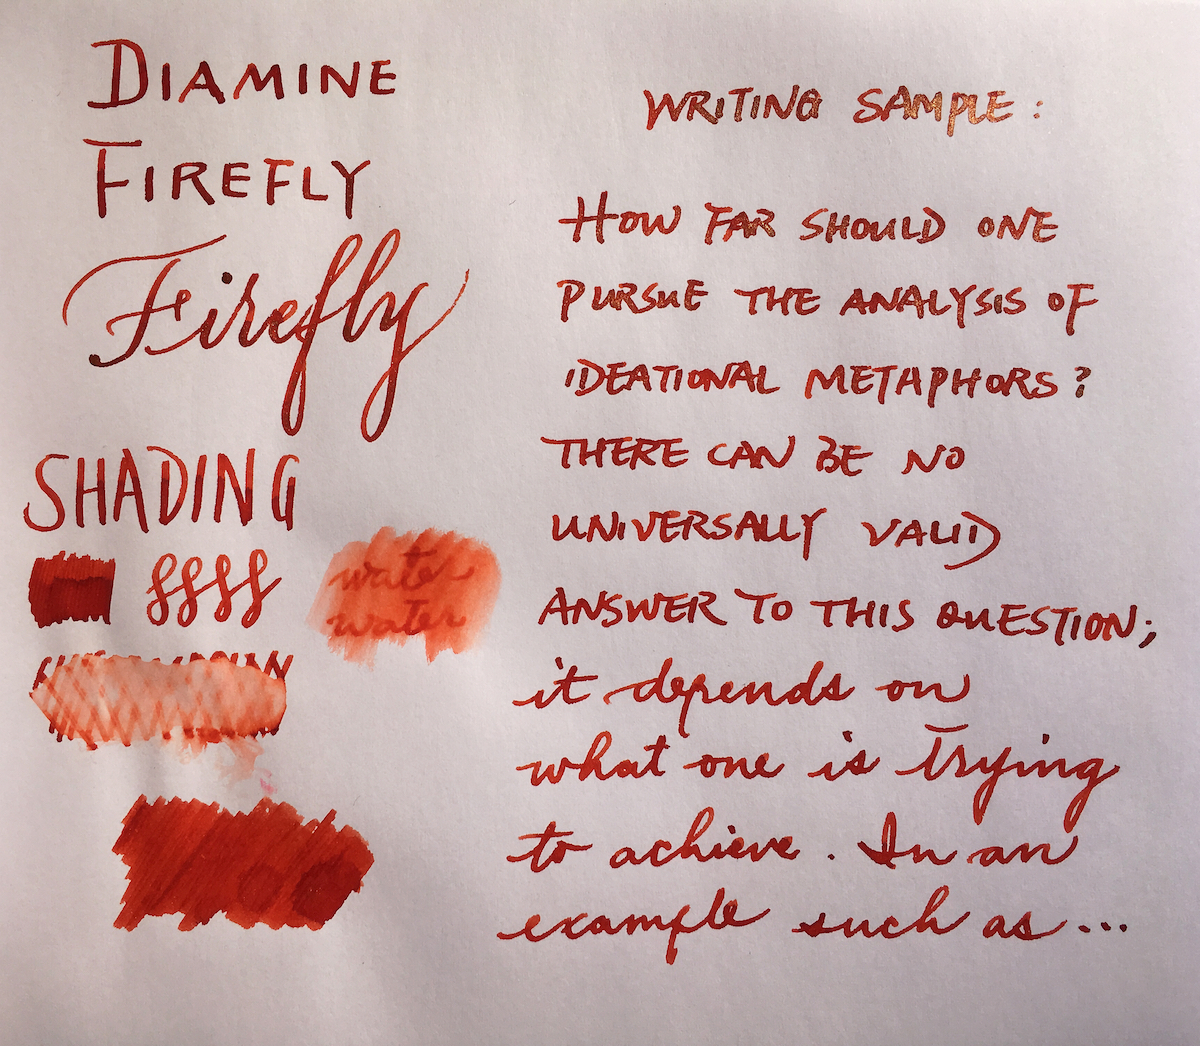 DIAMINE
FIREFLY
Firefly
SHADING
water
water
WRITING SAMPLE:
HOW FAR SHOULD ONE
PURSUE THE ANALYSIS OF
IDEATIONAL METAPHORS?
THERE CAN BE NO
UNIVERSALLY VALID
ANSWER TO THIS QUESTION;
it depends on
what one is trying
to achieve. In an
example such as...